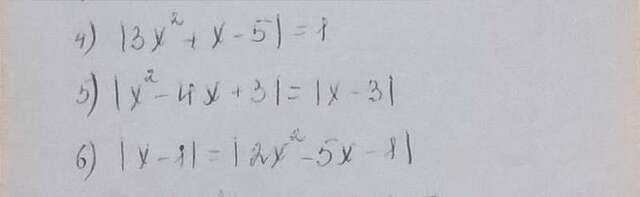 4) |3x² + x - 5| = 1
5) |x² - 4x + 3| = |x - 3|
6) |x - 1| = |2x² - 5x - 1|